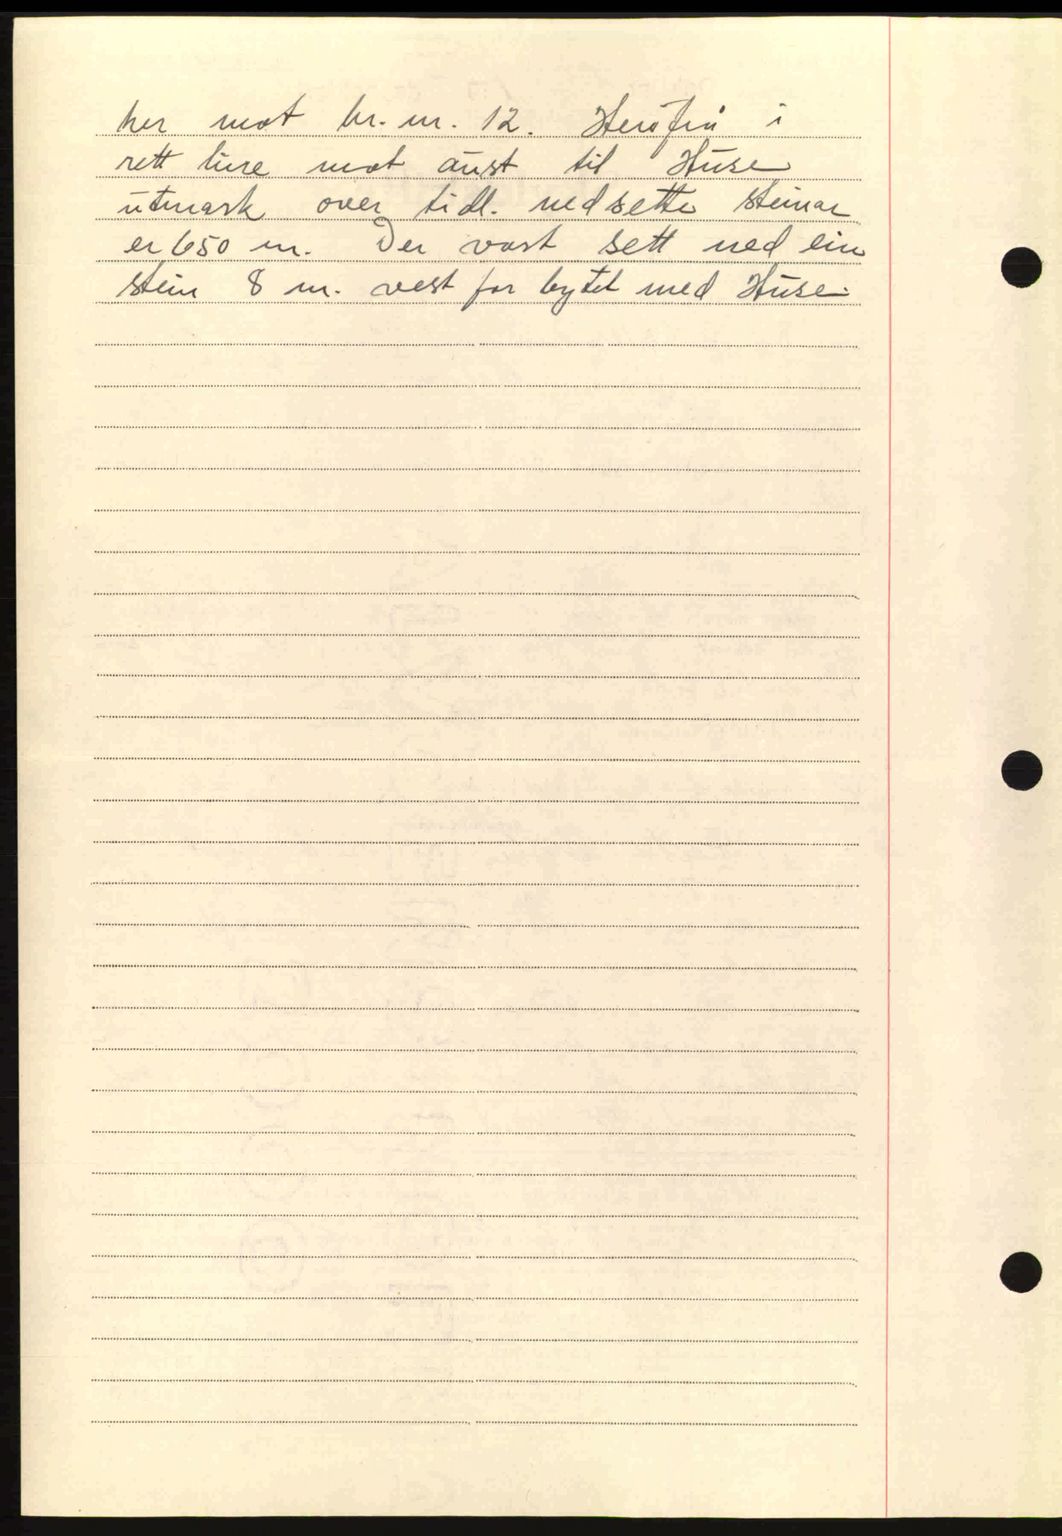 her mot br. nr. 12. Herifrå i
rett line mot aust til Huse
utmark over tidl. nedsette steinar
er 650 m. Der vart sett ned ein
stein 8 m. vest for bytet med Huse.